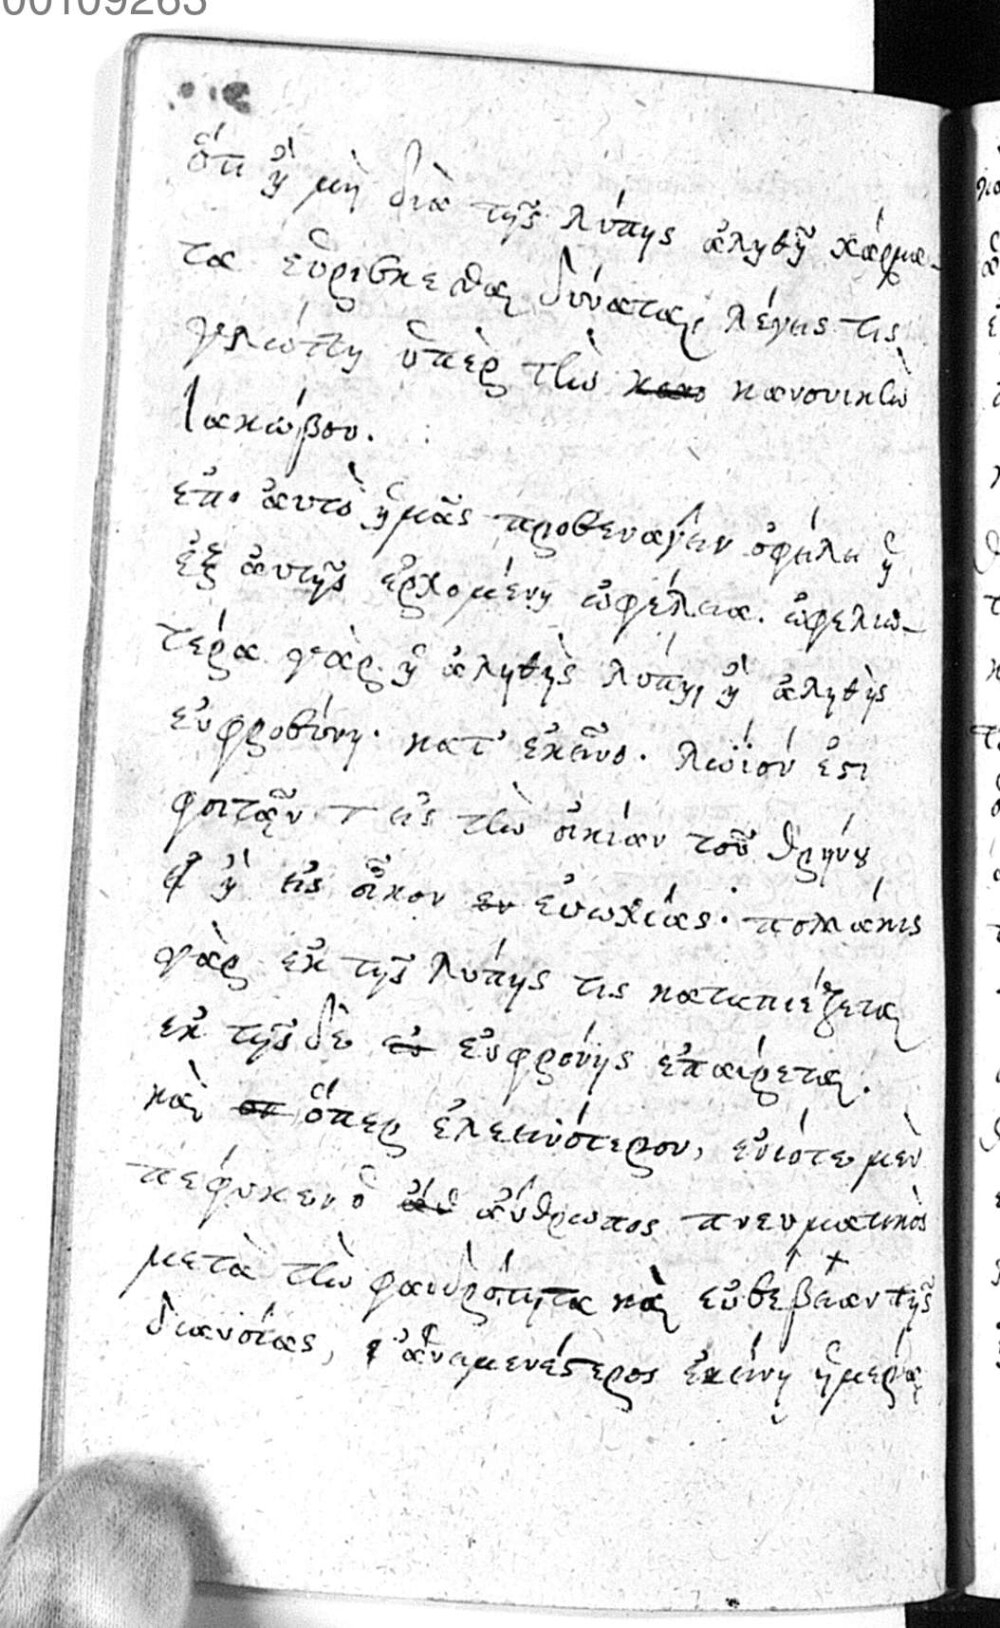 00109263
ὅτι ἢ μὴ διὰ τῆς λύπης ἀληθῆ χάρμα-
τα εὑρίσκεσθαι δύναται, λέγεις τις
γελώτῃ ὑπὲρ τὴν κανονικὴν
Ἰακώβου.
ἐπ' αὐτὸ ἡμᾶς προξεναγεῖν ὀφείλει ἡ
ἐξ αὐτῆς ἐρχομένη ὠφέλεια. ὠφελιω-
τέρα γὰρ ἡ ἀληθὴς λύπη, ἢ ἀληθὴς
εὐφροσύνη. κατ' ἐκεῖνο. λώϊόν ἐστι
φοιτᾷν εἰς τὴν οἰκίαν τοῦ θρήνου,
ἢ εἰς οἶκον εὐωχίας. πολλάκις
γὰρ ἐκ τῆς λύπης τις καταπιέζεται
ἐκ τῆς δὲ εὐφρόνης ἐπαίρεται.
καὶ ὅπερ ἐλεεινότερον, ἐνίοτε μὲν
πέφυκεν ὁ ἄνθρωπος πνευματικὸς
μετὰ τὴν φαιδρότητα καὶ εὐσέβειαν τῆς
διανοίας, ἐκείνῃ ἡμέρᾳ